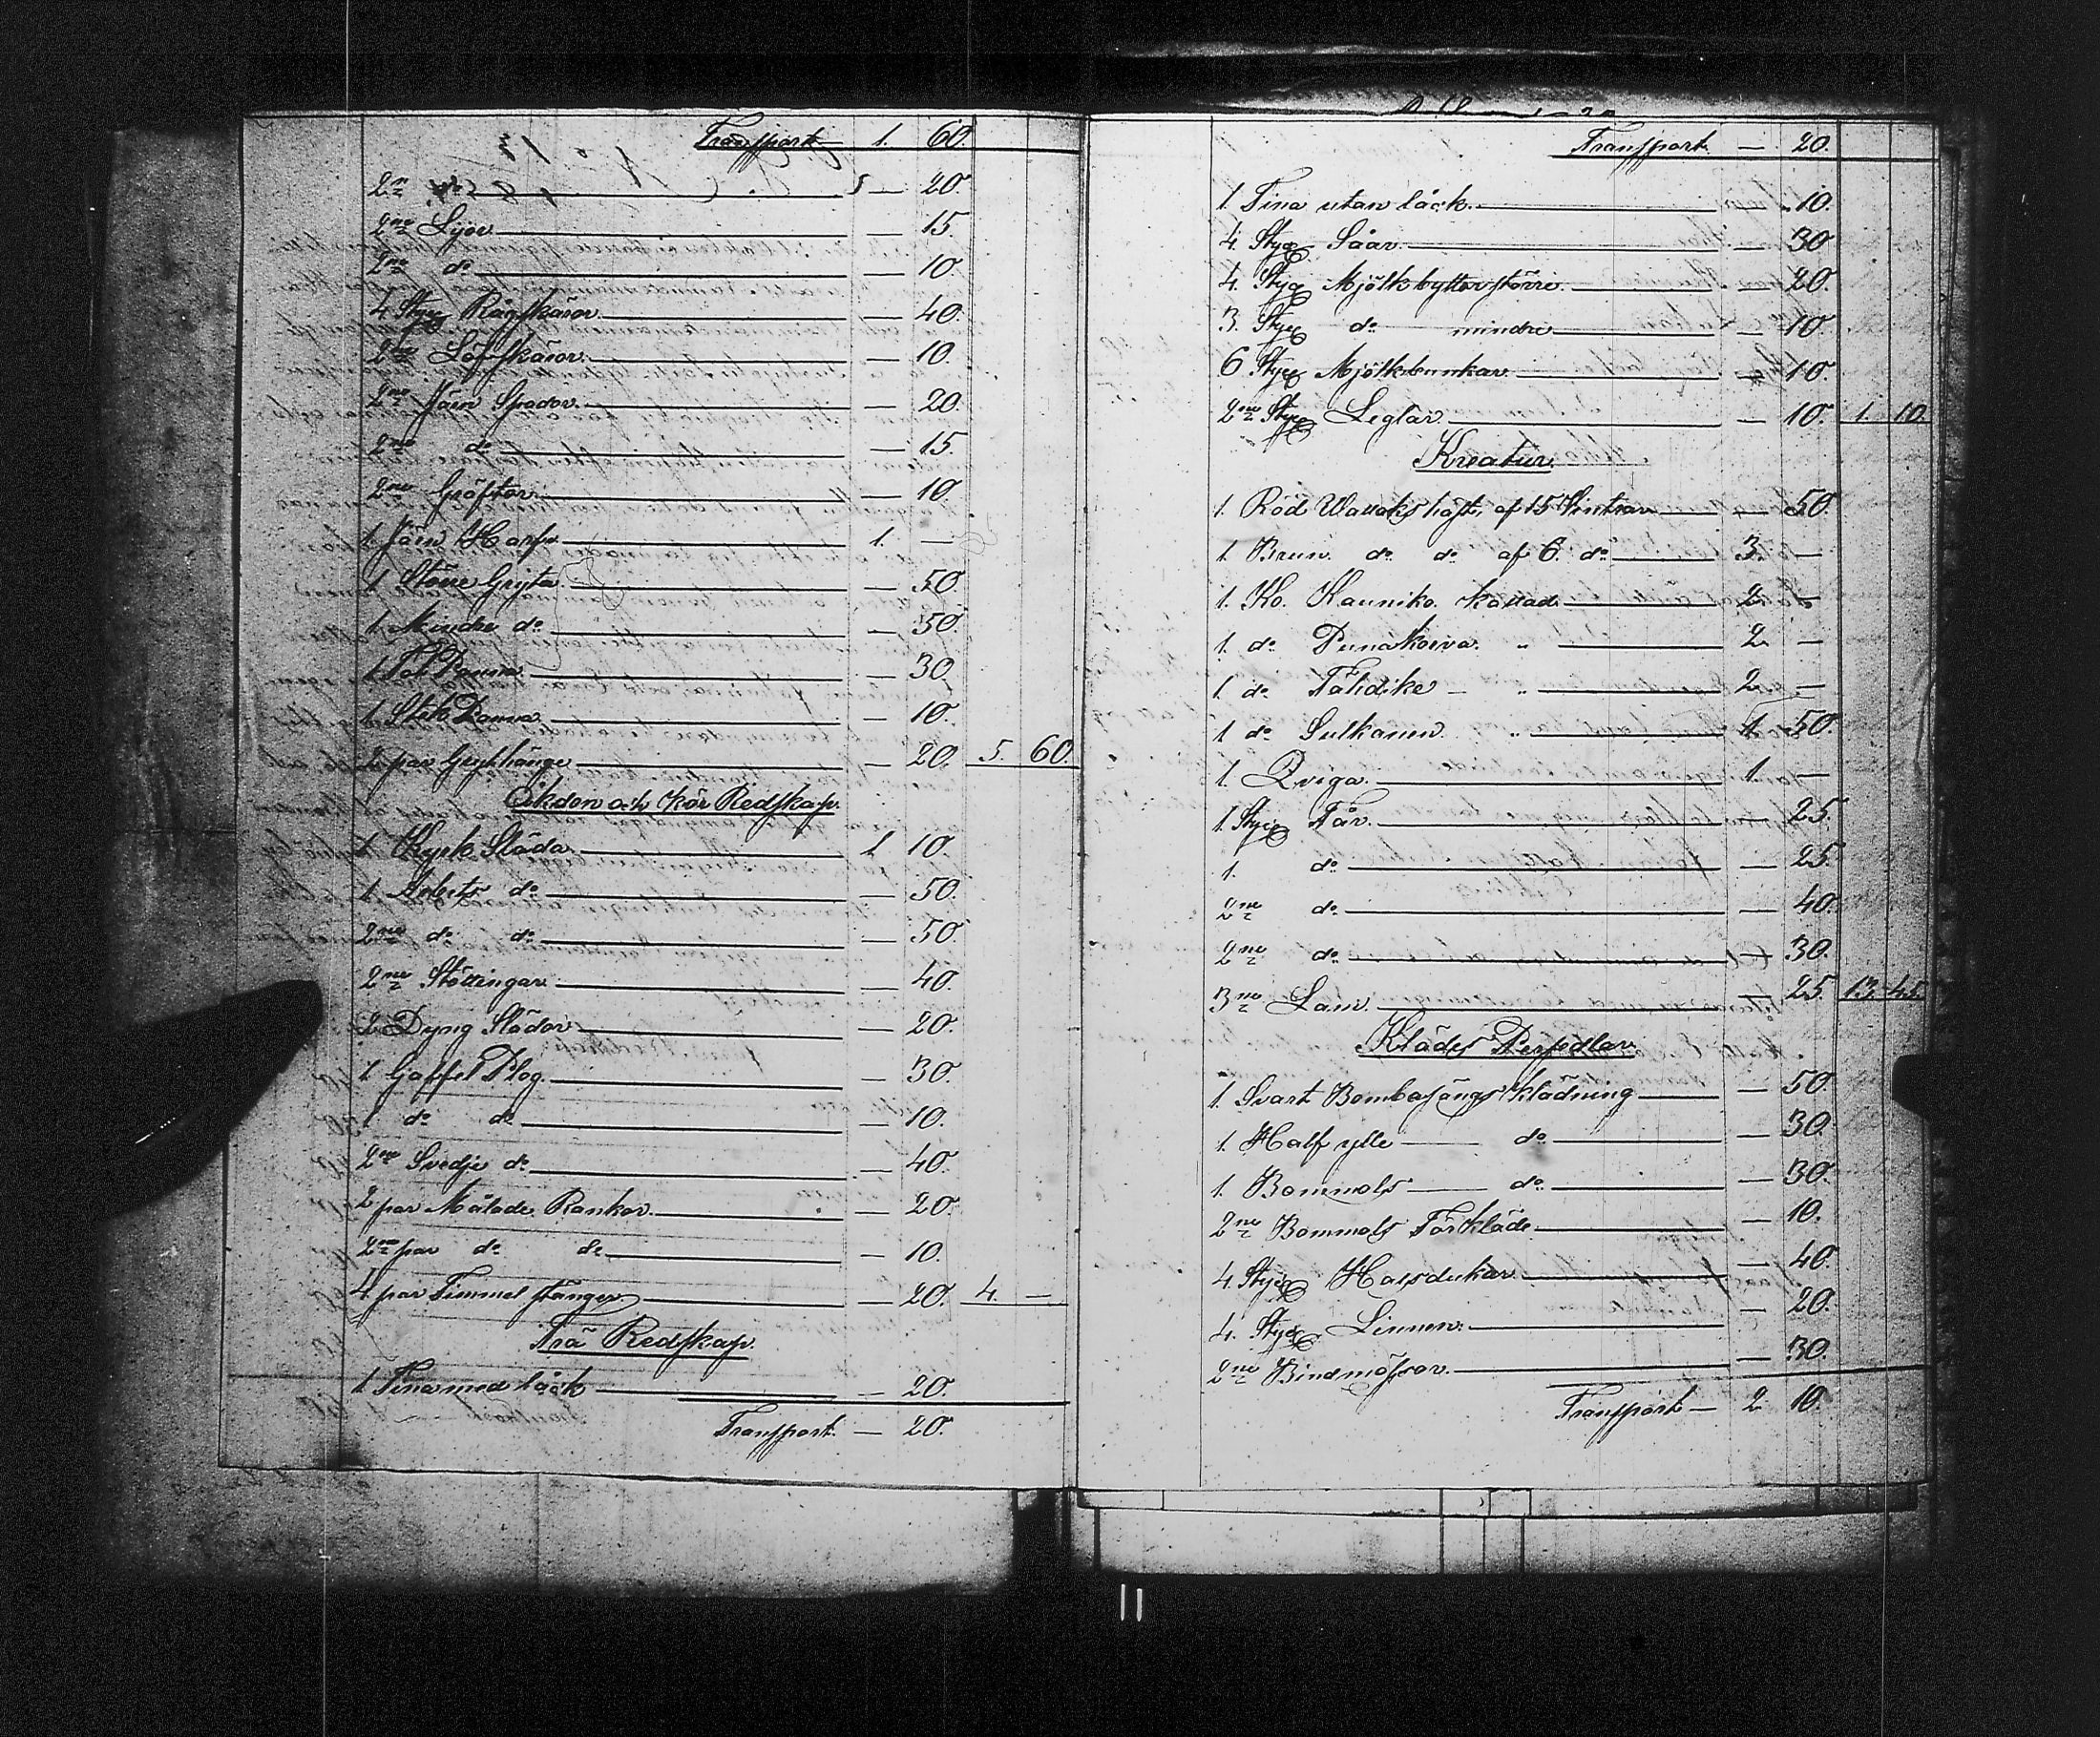 Transport 1. 60.
2ne do — 20.
2ne Lijor — 15.
2ne do — 10.
4 Styg Rågskäror — 40.
2ne Löfskäror — 10.
2ne Järn Spador — 20.
2ne do — 15.
2ne Gräftor — 10.
1. Järn Harf 1. —
1. Störe Gryta — 50.
1. Mindre do — 50.
1. Panna — 30
1. Stek Panna — 10.
2 par — 20. 5. 60.
Åkdon och Kör Redskap.
1. Kyrk Släda 1 10.
1. Arbets do — 50.
2ne do do — 50.
2ne Stöttingar — 40.
2 Dyng Slädor — 20.
1. Gaffel Plog — 30.
1. do do — 10.
2ne Svedje do — 40.
2 par Målade Rankor — 20.
2ne par do do — 10.
4 par Timmel stänger — 20. 4. —
Trä Redskap.
1. Tina med låck — 20.
Transport — 20.
Transport — 20.
1. Tina utan låck — 10.
4. Styg Såar — 30
4. Styg Mjölkbyttor större — 20
3. Styg do mindre — 10
6 Styg Mjölkbunkar — 10.
2ne Styg Leglar — 10. 1. 10.
Kreatur.
1. Röd Wallaks häst, af 15 Vintrar — 50.
1. Brun do do af 6. do 3. —
1. Ko. Kauniko kallad 2. —
1. do Punakorva " 2. —
1. do Tähdike " 2. —
1. do Sulkanen " 1. 50.
1. Qviga 1. —
1. Styg Får — 25.
1. do — 25
2ne do — 40.
2ne do — 30.
3ne Lam — 25. 13. 45.
Klädes Persedlar
1. Svart Bombasängs Klädning — 50.
1. Half ylle do — 30.
1. Bommols do — 30.
2ne Bommols Förkläde — 10.
4 Styg Halsdukar — 40.
4. Styg Linnen — 20.
2ne Bindmössor — 30.
Transport — 2. 10.
11